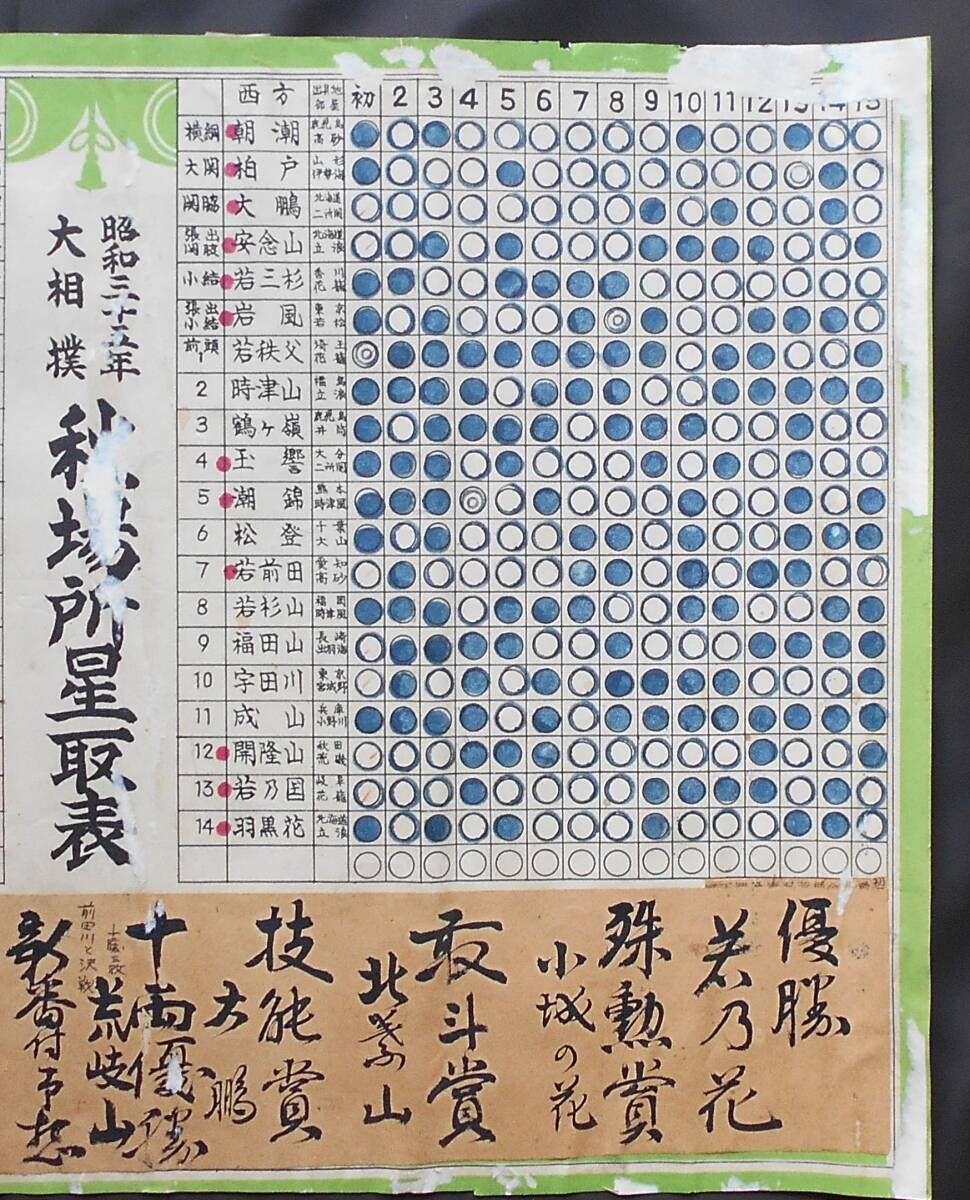 昭和三十五年
大相撲
秋場所星取表
西方 出身地 部屋 初 2 3 4 5 6 7 8 9 10 11 12 13 14 15
横綱 朝潮 鹿児島 高砂
大関 柏戸 山形 伊勢海
関脇 大鵬 北海道 二所関
張出関脇 安念山 北海道 立浪
小結 若三杉 香川 花籠
張出小結 岩風 東京 若松
前頭1 若秩父 埼玉 花籠
2 時津山 福島 立浪
3 鶴ヶ嶺 鹿児島 井筒
4 玉響 大分 二所関
5 潮錦 熊本 時津風
6 松登 千葉 大山
7 若前田 愛知 高砂
8 若杉山 福岡 時津風
9 福田山 長崎 出羽海
10 宇田川 東京 宮城野
11 成山 兵庫 小野川
12 開隆山 秋田 荒磯
13 若乃国 岐阜 花籠
14 羽黒花 北海道 立浪
優勝
若乃花
殊勲賞
小城の花
敢斗賞
北葉山
技能賞
大鵬
十両優勝
十両三枚
荒岐山
前田川と決戦
新番付予想